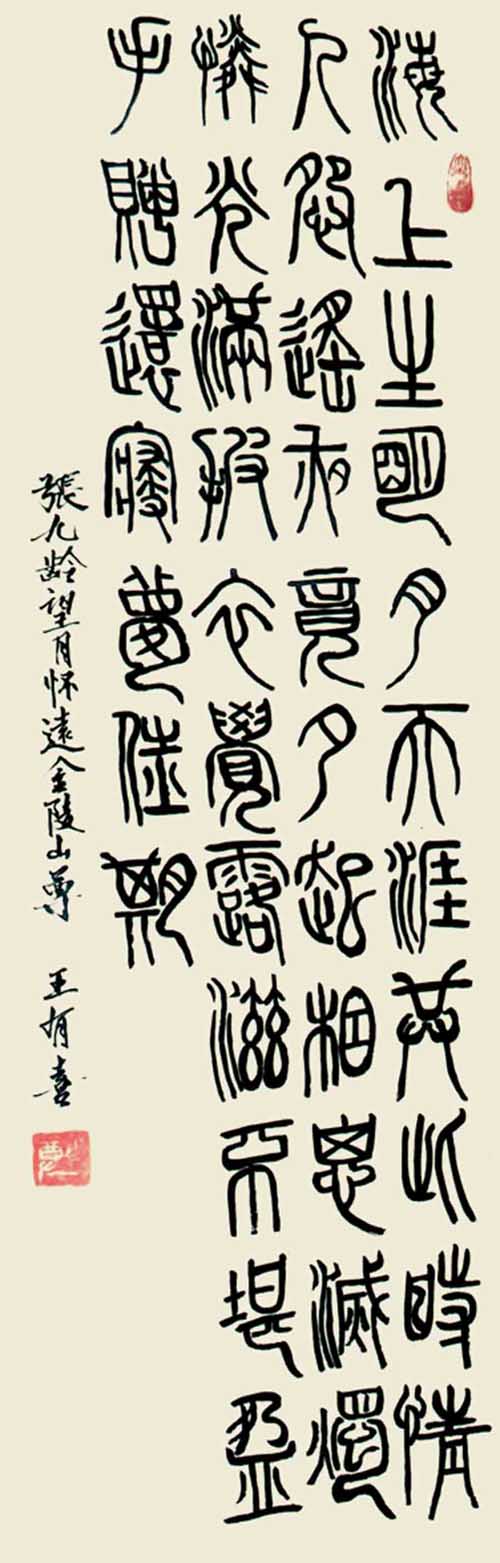 海上生明月天涯共此時情
人怨遙夜竟夕起相思滅燭
憐光滿披衣覺露滋不堪盈
手贈還寢夢佳期
張九齡望月怀遠金陵山尊 王有喜